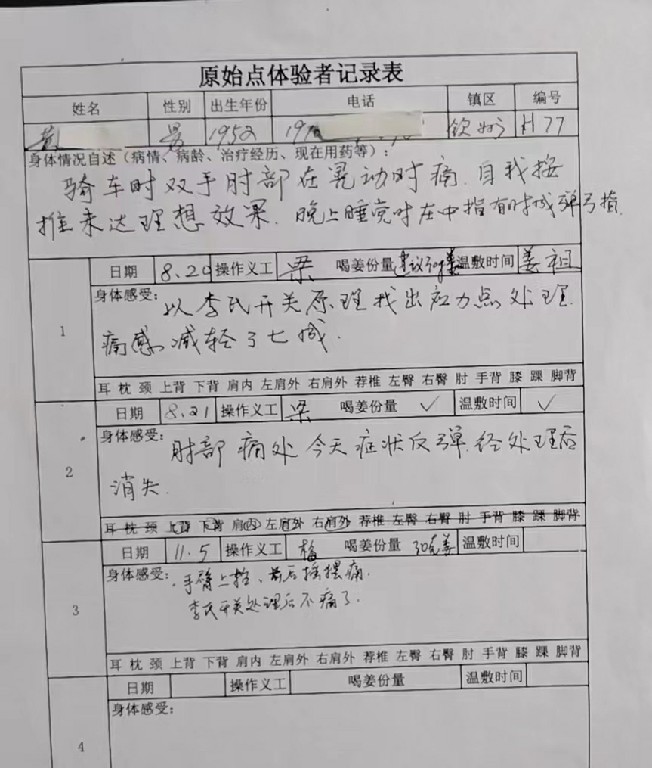 原始点体验者记录表
姓名 性别 出生年份 电话 镇区 编号
黄 男 1952 19 钦州 H77
身体情况自述（病情、病龄、治疗经历、现在用药等）：
骑车时双手肘部在晃动时痛. 自我按
推未达理想效果. 晚上睡觉时左中指有时成弹弓指.
1
日期 8.20 操作义工 梁 喝姜份量 建议30g姜 温敷时间 姜祖
身体感受： 以李氏开关原理找出应力点处理.
痛感减轻了七成.
耳 枕 颈 上背 下背 肩内 左肩外 右肩外 荐椎 左臀 右臀 肘 手背 膝 踝 脚背
2
日期 8.21 操作义工 梁 喝姜份量 ✓ 温敷时间 ✓
身体感受： 肘部痛处今天症状反弹.经处理后
消失.
耳 枕 颈 上背 下背 肩内 左肩外 右肩外 荐椎 左臀 右臀 肘 手背 膝 踝 脚背
3
日期 11.5 操作义工 梅 喝姜份量 30克姜 温敷时间
身体感受： 手臂上抬、前后摇摆痛.
李氏开关处理后不痛了.
耳 枕 颈 上背 下背 肩内 左肩外 右肩外 荐椎 左臀 右臀 肘 手背 膝 踝 脚背
4
日期 操作义工 喝姜份量 温敷时间
身体感受：